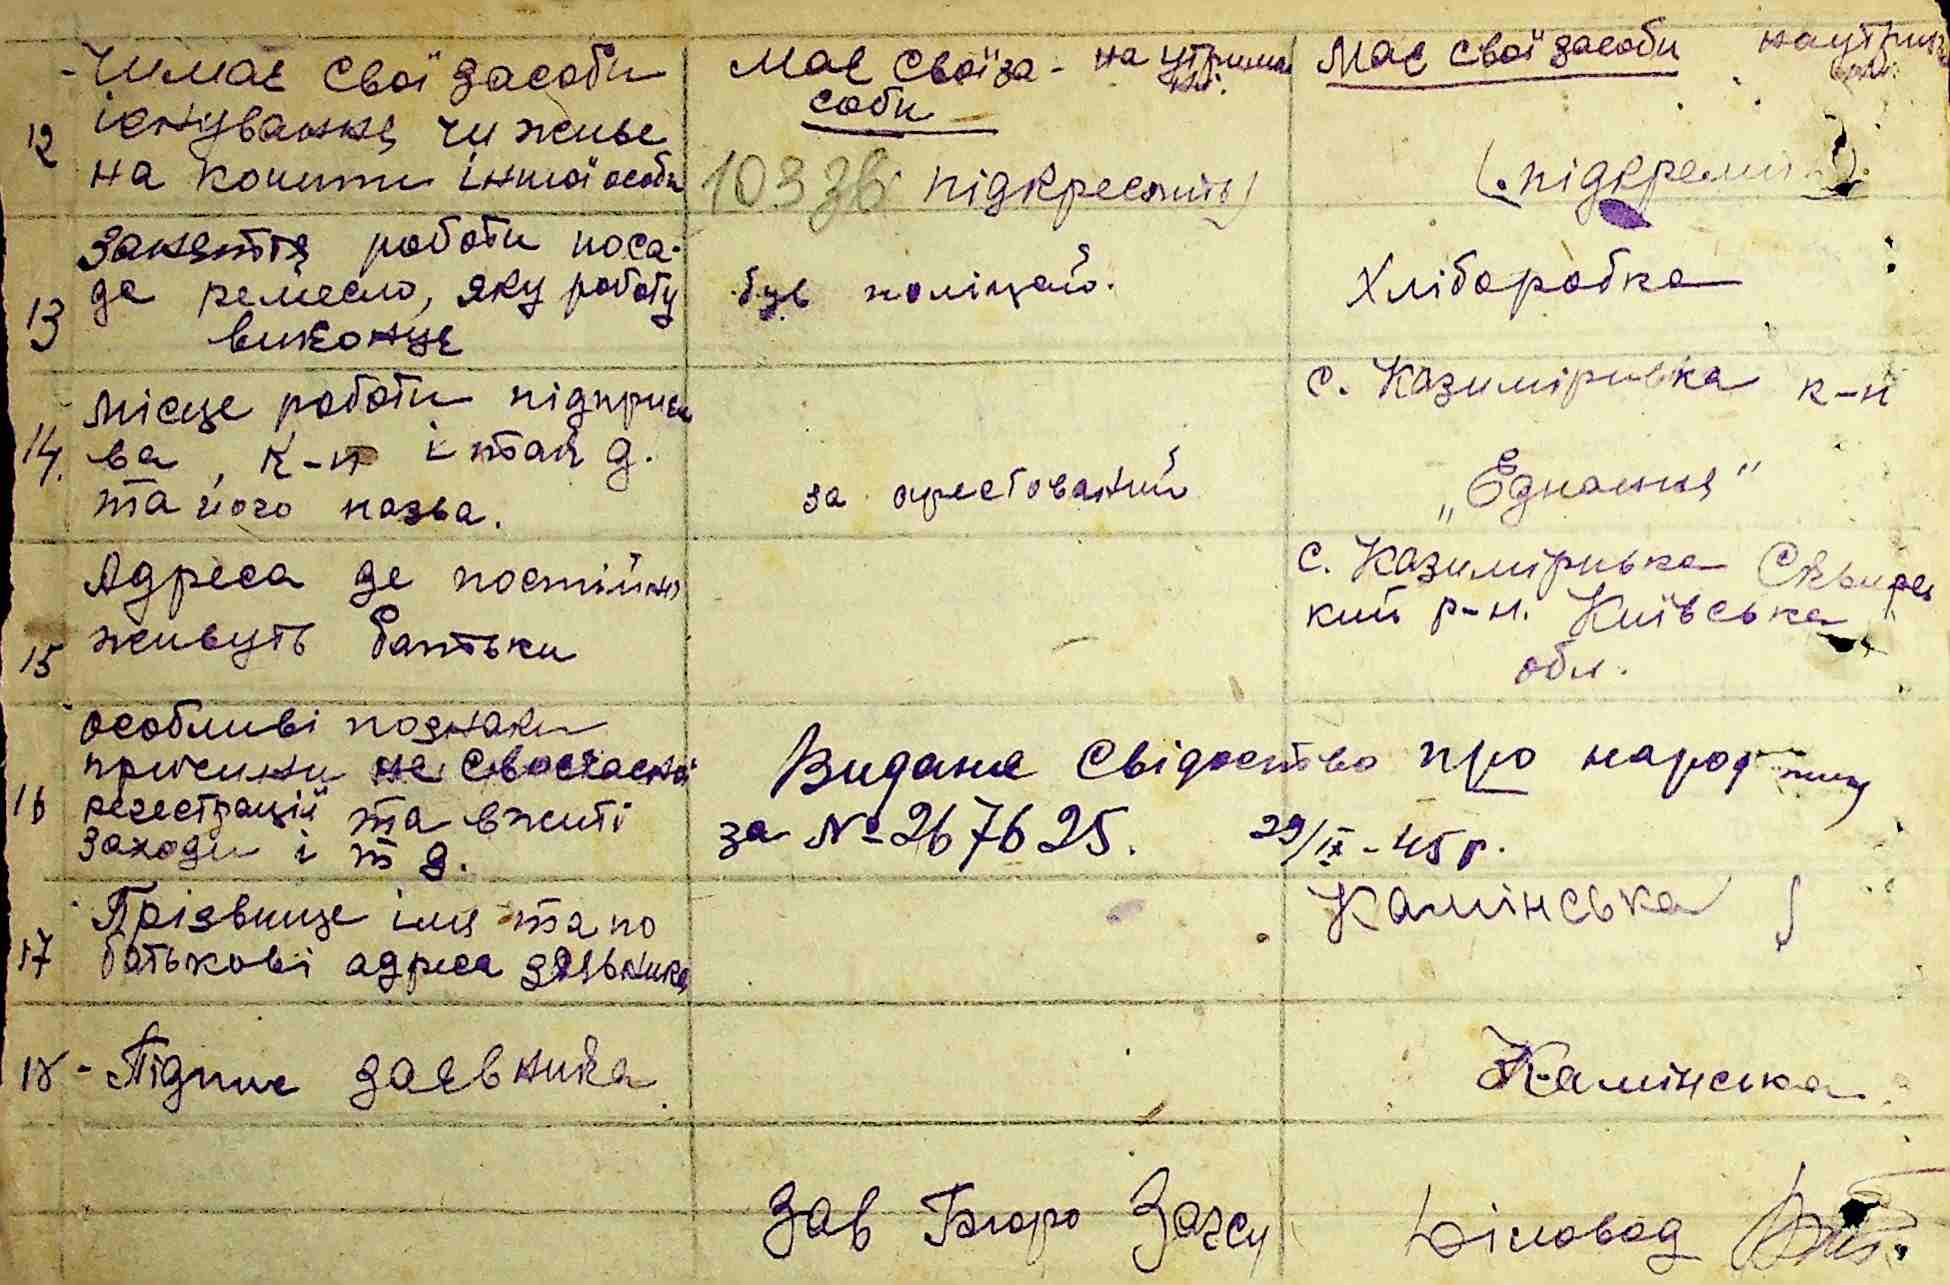 12 Чи має свої засоби
існування чи живе
на кошти іншої особи
Має свої за-
соби
на утриман
ні.
103 зв підкреслить)
Має свої засоби
на утриман
ні.
(підкреслить).
13 Заняття роботи поса-
да ремесло, яку роботу
виконує
був поліцай.
Хліборобка
14. Місце роботи підприєм
ва, к-п і так д.
та його назва.
за арестований
с. Казимірівка к-п
„Єднання"
15 Адреса де постійно
живуть батьки
с. Казимірівка Сквирсь
кий р-н. Київська
обл.
16 особливі познаки
причини не своєчасної
реєстрації та вжиті
заходи і т д.
Видане свідоство про народження
за № 267625. 29/IX-45 р.
17 Прізвище імя та по
батькові адреса заявника
Камінська
18 - Підпис заєвника
Камінська
Зав Бюро Загсу
Діловод